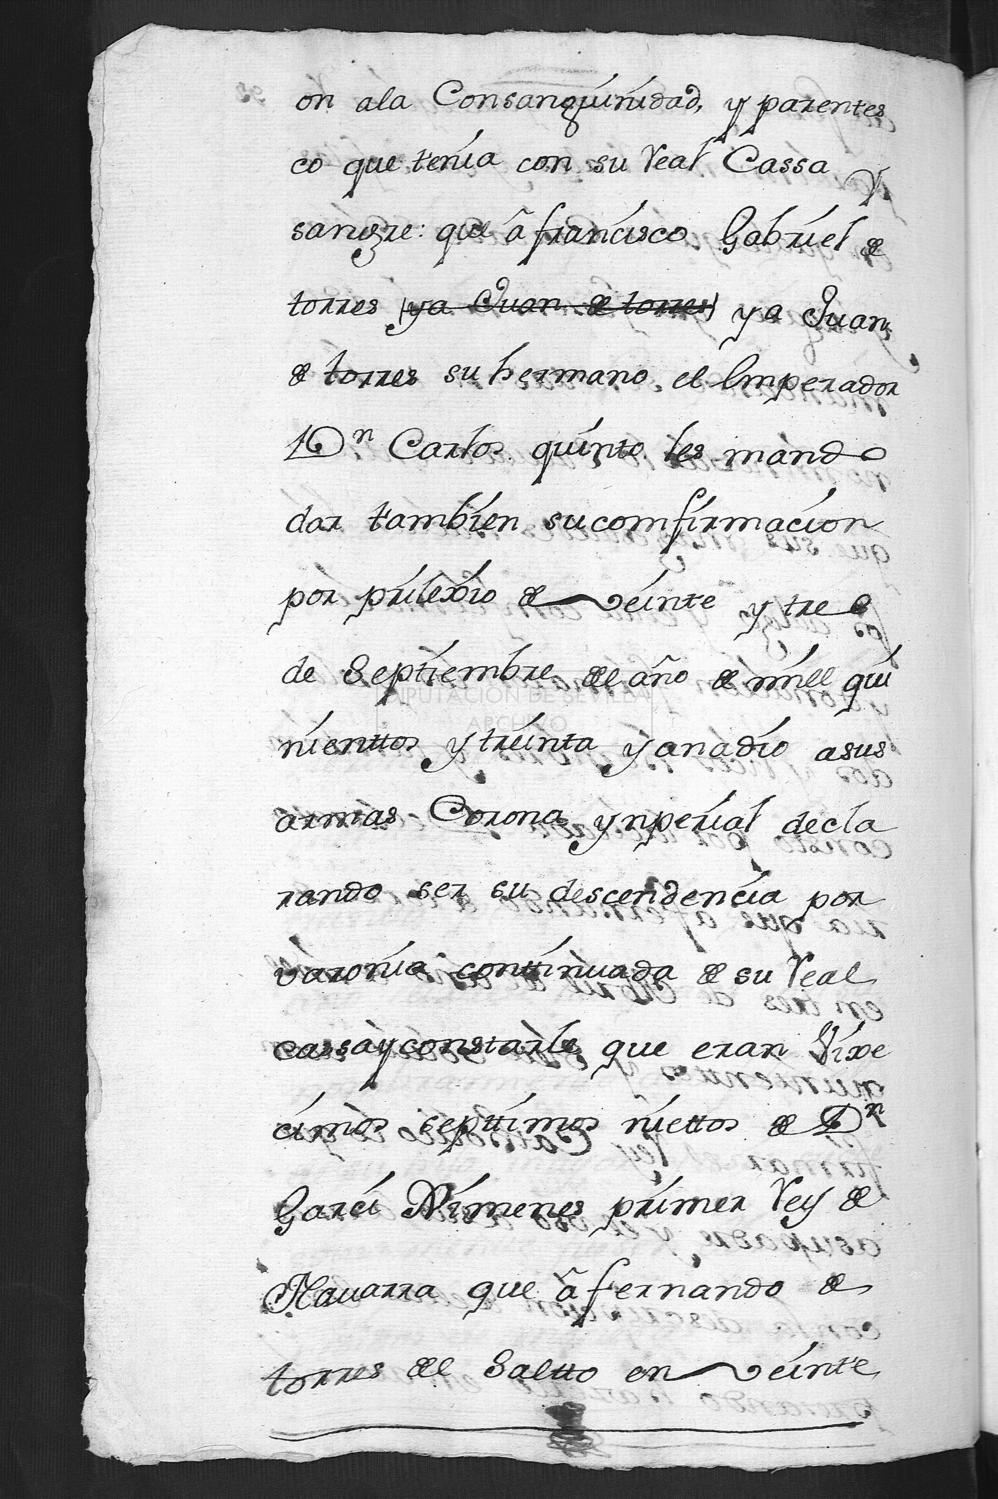 on ala Consanguinidad, y parentes
co que tenia con su Real Cassa y
sangre: que â francisco Gabriel de
torres (ya Juan de torres) ya Juan
de torres su hermano el Emperador
Dn Carlos quinto les mando
dar tambien su comfirmacion
por prilexio de veinte y tres
de Septiembre del año de mill qui
nienttos y treinta y anadio a sus
armas Corona ynperial decla
rando ser su descendencia por
varonia conttinuada de su Real
cassa y constarle que eran Vixe
cimos septtimos niettos de Dn
Garci Ximenes primer Rey de
Navarra que â fernando de
torres del Saltto en veinte
DIPUTACIÓN DE SEVILLA
ARCHIVO